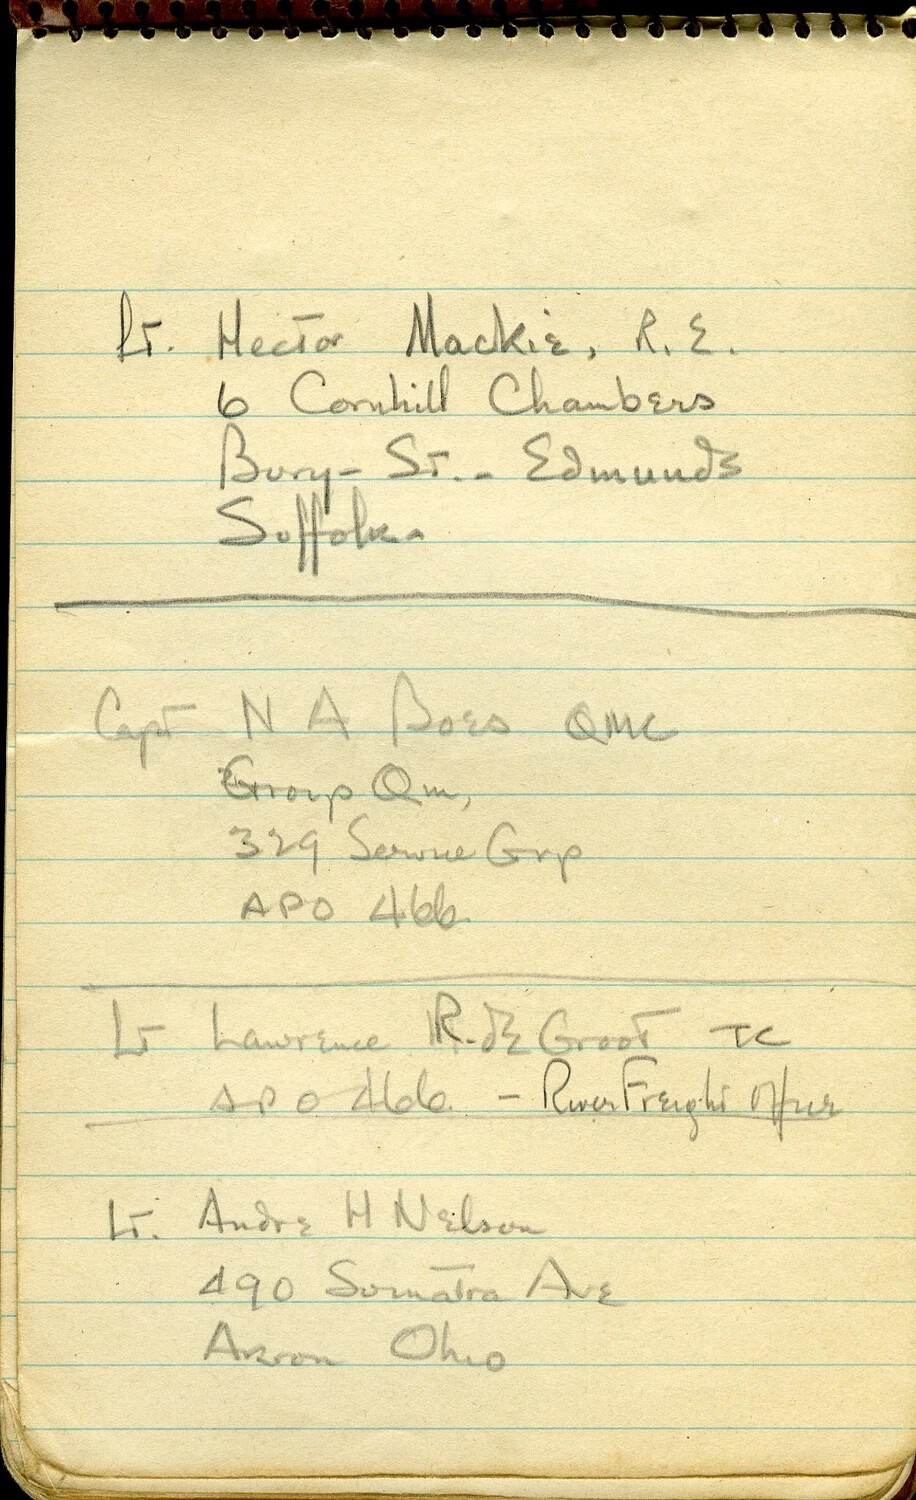 Lt. Hector Mackie, R.E.
6 Cornhill Chambers
Bury-St.-Edmunds
Suffolk.
Capt N A Boes QMC
Group Qm,
329 Service Grp
APO 466
Lt Lawrence R. de Groot TC
APO 466 - River Freight Officer
Lt. Andre H Nelson
490 Sumatra Ave
Akron Ohio